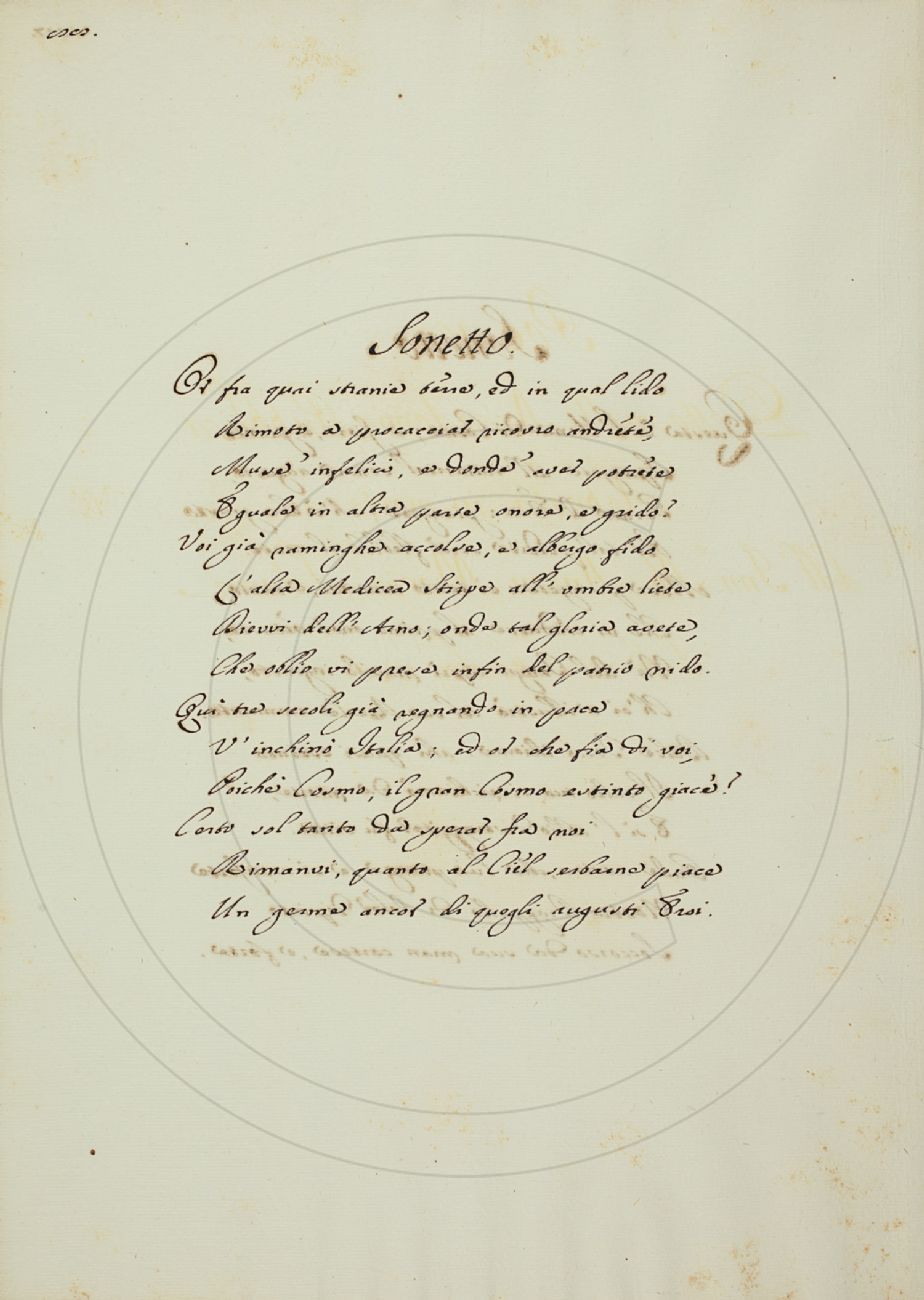 Sonetto.
Or fra quai stranie terre, ed in qual lido
Rimoto a procacciar ricovro andrete,
Muse infelici, e donde aver potrete
Eguale in altra parte onore, e grido?
Voi già raminghe accolse, e albergo fido
L' alta Medicea Stirpe all' ombre liete
Dievvi dell' Arno; onde tal gloria avete,
Che oblio vi prese infin del patrio nido.
Qui tre secoli già regnando in pace
V' inchinò Italia; ed or che fia di voi,
Poichè Cosmo, il gran Cosmo estinto giace?
Certo sol tanto da sperar fra noi
Rimanvi, quanto al Ciel serbarne piace
Un germe ancor di quegli augusti Eroi.